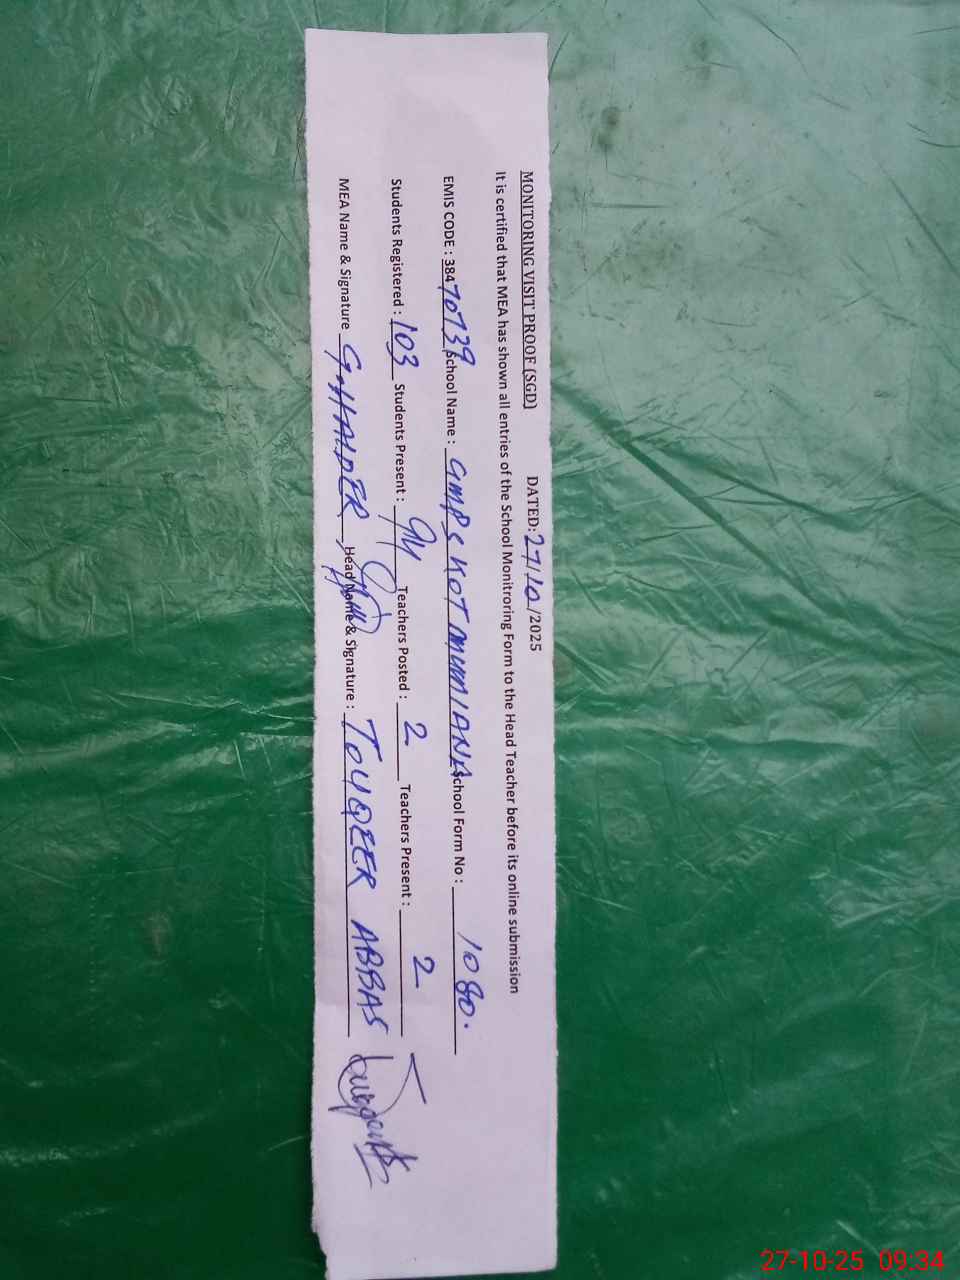 MONITORING VISIT PROOF (SGD) DATED: 27/10/2025
It is certified that MEA has shown all entries of the School Monitroring Form to the Head Teacher before its online submission
EMIS CODE : 38470739 School Name : GMPS KOT MUMIANA School Form No : 1080.
Students Registered : 103 Students Present : 94 Teachers Posted : 2 Teachers Present : 2
MEA Name & Signature G.HAIDER Head Name & Signature : TOUQEER ABBAS
27-10-25 09:34